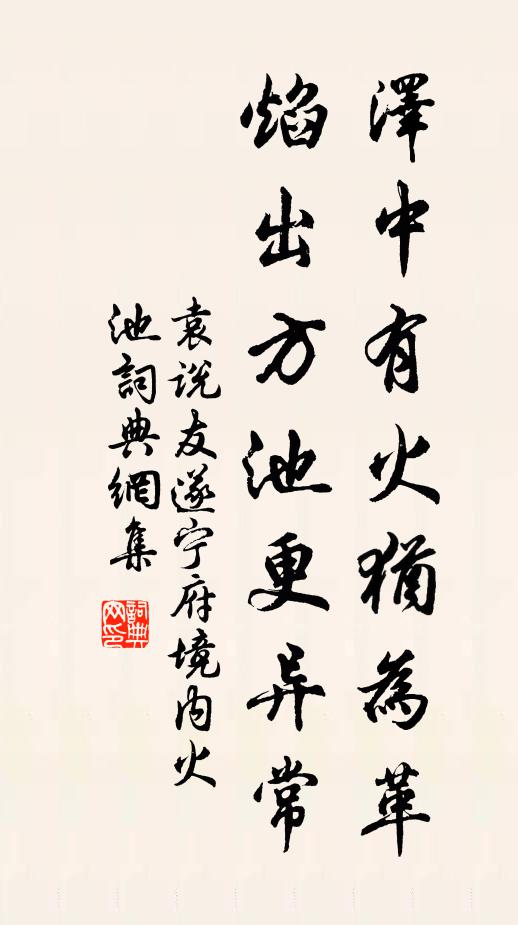 澤中有火猶為革
焰出方池更异常
袁说友遂宁府境内火
池詞典網集
詞典
网印